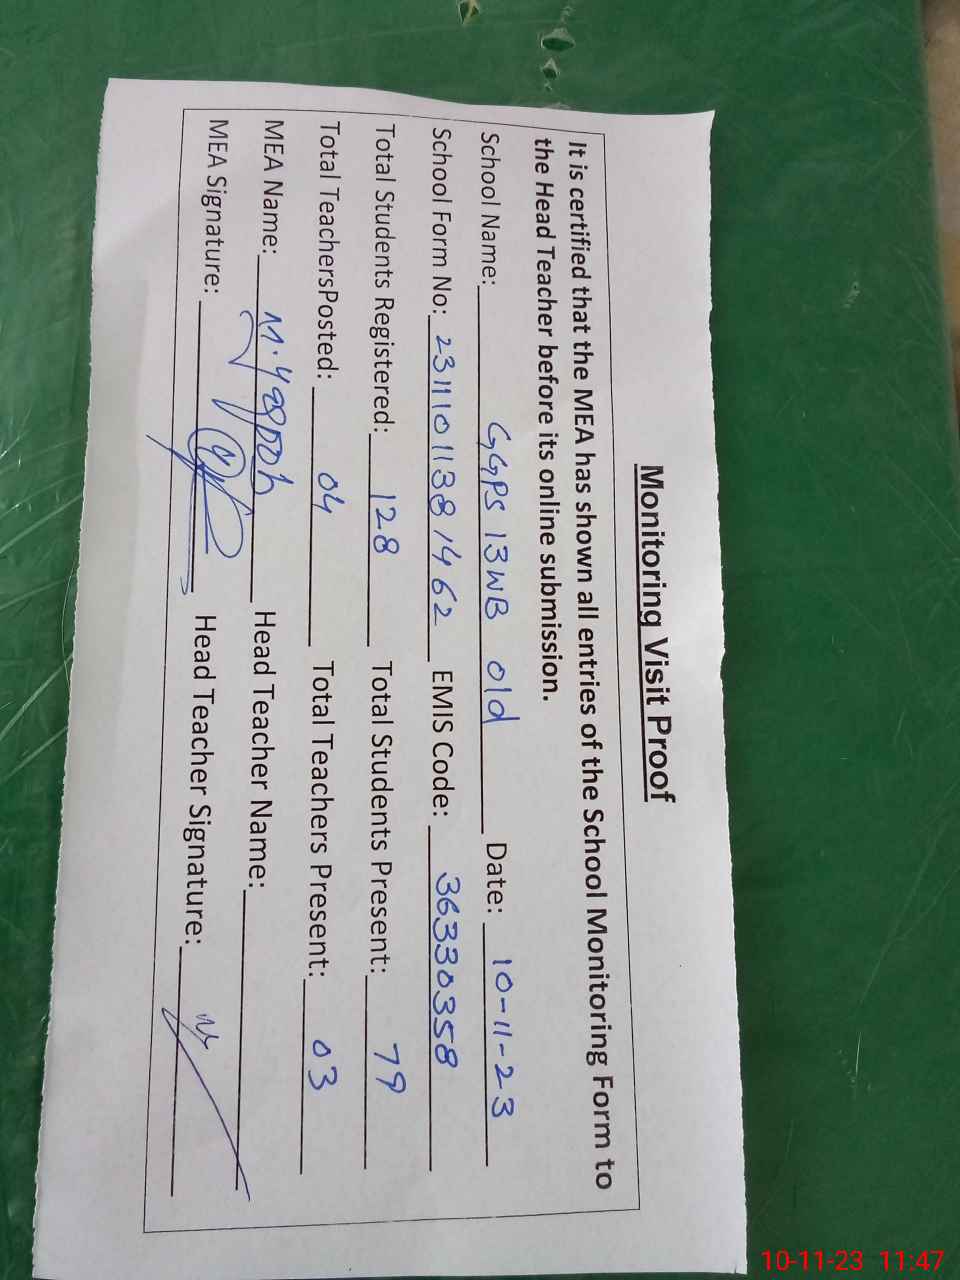 Monitoring Visit Proof
It is certified that the MEA has shown all entries of the School Monitoring Form to
the Head Teacher before its online submission.
School Name: GGPS 13WB old Date: 10-11-23
School Form No: 23111011381462 EMIS Code: 36330358
Total Students Registered: 128 Total Students Present: 79
Total TeachersPosted: 04 Total Teachers Present: 03
MEA Name: M. Yaqoob Head Teacher Name:
MEA Signature: Head Teacher Signature:
10-11-23 11:47